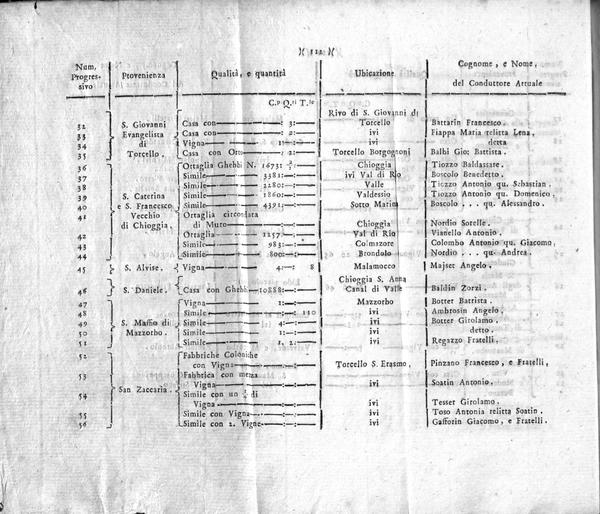 )( 122 )(
Num. Progres- sivo | Provenienza | Qualità, e quantità | Ubicazione | Cognome, e Nome, del Conduttore Attuale
C.p Q.ti T.le
Rivo di S. Giovanni di
32 | S. Giovanni | Casa con —:— 3:— | Torcello | Battarin Francesco.
33 | Evangelista | Casa con —:— 2:— | ivi | Fiappa Maria relitta Lena.
34 | di | Vigna — 1:—:— | ivi | detta
35 | Torcello. | Casa con Orto —:— 2:— | Torcello Borgognoni | Balbi Gio: Battista.
36 | Ortaglia Ghebbi N. 1673: | Chioggia | Tiozzo Baldassare.
37 | Simile — 3381:— | ivi Val di Rio | Boscolo Benedetto.
38 | Simile — 2280:— | Valle | Tiozzo Antonio qu. Sebastian.
39 | S. Caterina | Simile — 1860:— | Valdessio | Tiozzo Antonio qu. Domenico.
40 | e S. Francesco | Simile — 4393:— | Sotto Marina | Boscolo . . . qu. Alessandro.
41 | Vecchio | Ortaglia circondata
di Chioggia. | di Muro —:—:— | Chioggia | Nordio Sorelle.
42 | Ortaglia — 1257:— | Val di Rio | Vianello Antonio.
43 | Simile — 983:— | Colmazore | Colombo Antonio qu. Giacomo.
44 | Simile — 800:— | Brondolo | Nordio . . . qu. Andrea.
45 | S. Alvise. | Vigna — 4:—: 8 | Malamocco | Majset Angelo.
Chioggia S. Anna
46 | S. Daniele. | Casa con Ghebbi — 10888:— | Canal di Valle | Baldin Zorzi.
47 | Vigna — 1:— | Mazzorbo | Botter Battista.
48 | Simile —:—: 110 | ivi | Ambrosin Angelo.
49 | S. Maffio di | Simile — 4:— | ivi | Botter Girolamo.
50 | Mazzorbo. | Simile — 1:— | ivi | detto.
51 | Simile — 1. 2:— | ivi | Regazzo Fratelli.
52 | Fabbriche Coloniche
con Vigna —:—:— | Torcello S. Erasmo. | Pinzano Francesco, e Fratelli,
53 | Fabbrica con mezza
San Zaccaria. | Vigna —:—:— | ivi | Soatin Antonio.
54 | Simile con un di
Vigna —:—:— | ivi | Tesser Girolamo.
55 | Simile con Vigna —:—:— | ivi | Toso Antonia relitta Soatin.
56 | Simile con 2. Vigne —:—:— | ivi | Gafforin Giacomo, e Fratelli.